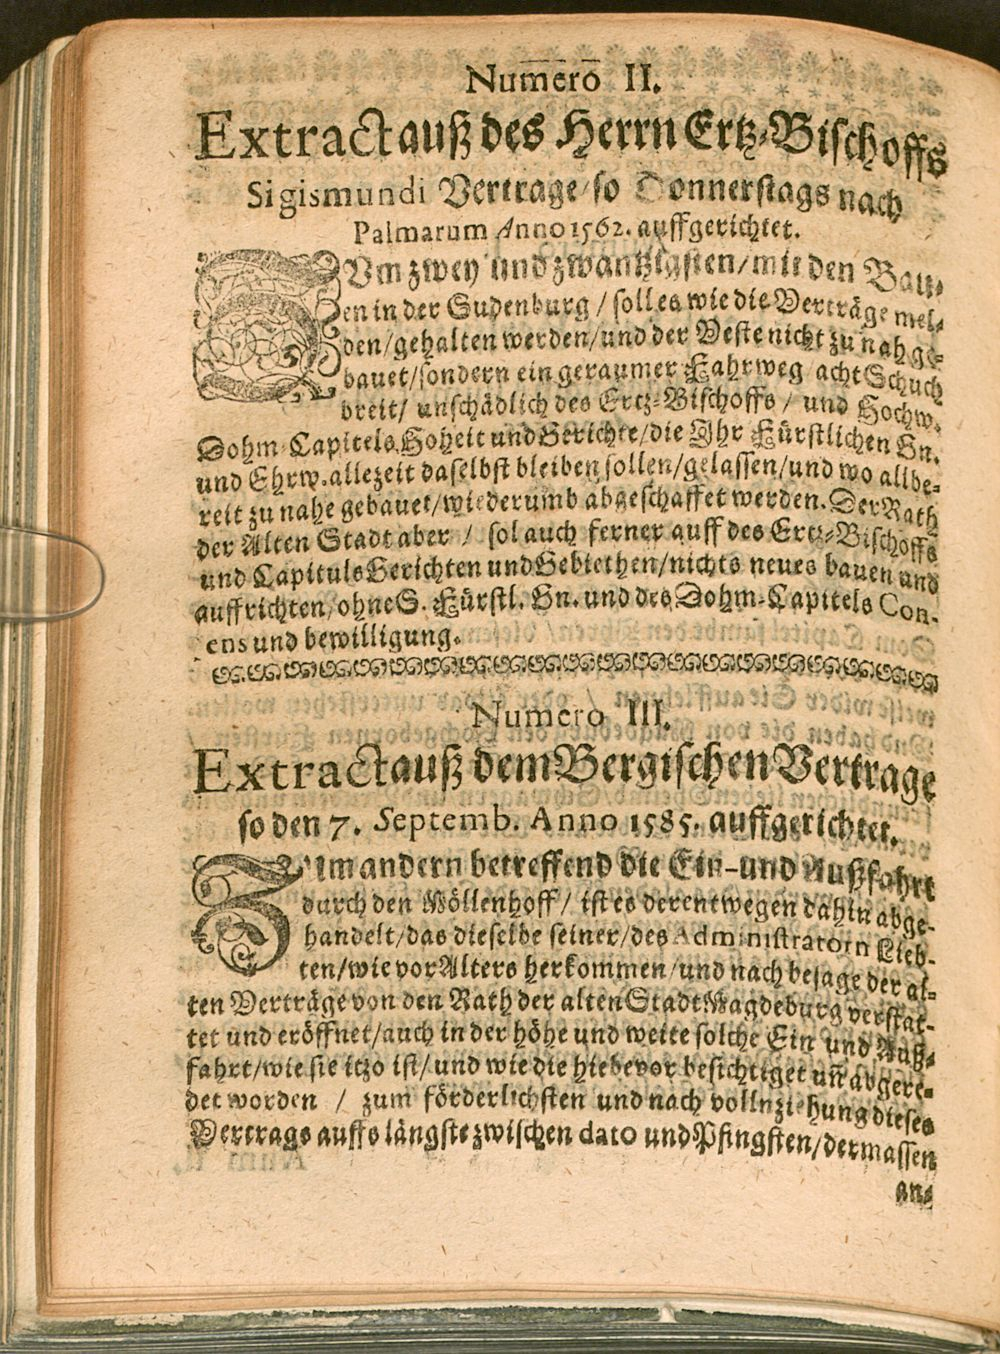 Numero II.
Extract auß des Herrn Ertz-Bischoffs
Sigismundi Vertrage/so Donnerstags nach
Palmarum Anno 1562. auffgerichtet.
ZUm zwey und zwantzigsten/mit den Bau-
en in der Sudenburg/soll es wie die Verträge mel-
den/gehalten werden/und der Veste nicht zu nah ge-
bauet/sondern ein geraumer Fahrweg acht Schuch
breit/ unschädlich des Ertz-Bischoffs/ und Hochw.
Dohm-Capitels Hoheit und Gerichte/die Ihr Fürstlichen Gn.
und Ehrw. allezeit daselbst bleiben sollen/gelassen/und wo allbe-
reit zu nahe gebauet/wiederumb abgeschaffet werden. Der Rath
der Alten Stadt aber / sol auch ferner auff des Ertz-Bischoffs
und Capituls Gerichten und Gebiethen/nichts neues bauen und
auffrichten/ohne S. Fürstl. Gn. und des Dohm-Capitels Con-
ens und bewilligung.
Numero III.
Extract auß dem Bergischen Vertrage
so den 7. Septemb. Anno 1585. auffgerichtet.
ZUm andern betreffend die Ein-und Außfahrt
durch den Möllenhoff/ ist es derentwegen dahin abge-
handelt/das dieselbe seiner/des Administratorn Lieb-
ten/wie vor Alters herkommen/und nach besage der al-
ten Verträge von den Rath der alten Stadt Magdeburg verstat-
tet und eröffnet/auch in der höhe und weite solche Ein und Auß-
fahrt/wie sie itzo ist/und wie die hiebevor besichtiget uñ abgere-
det worden / zum förderlichsten und nach vollnziehung dieses
Vertrags auffs längste zwischen dato und Pfingsten/dermassen
an-